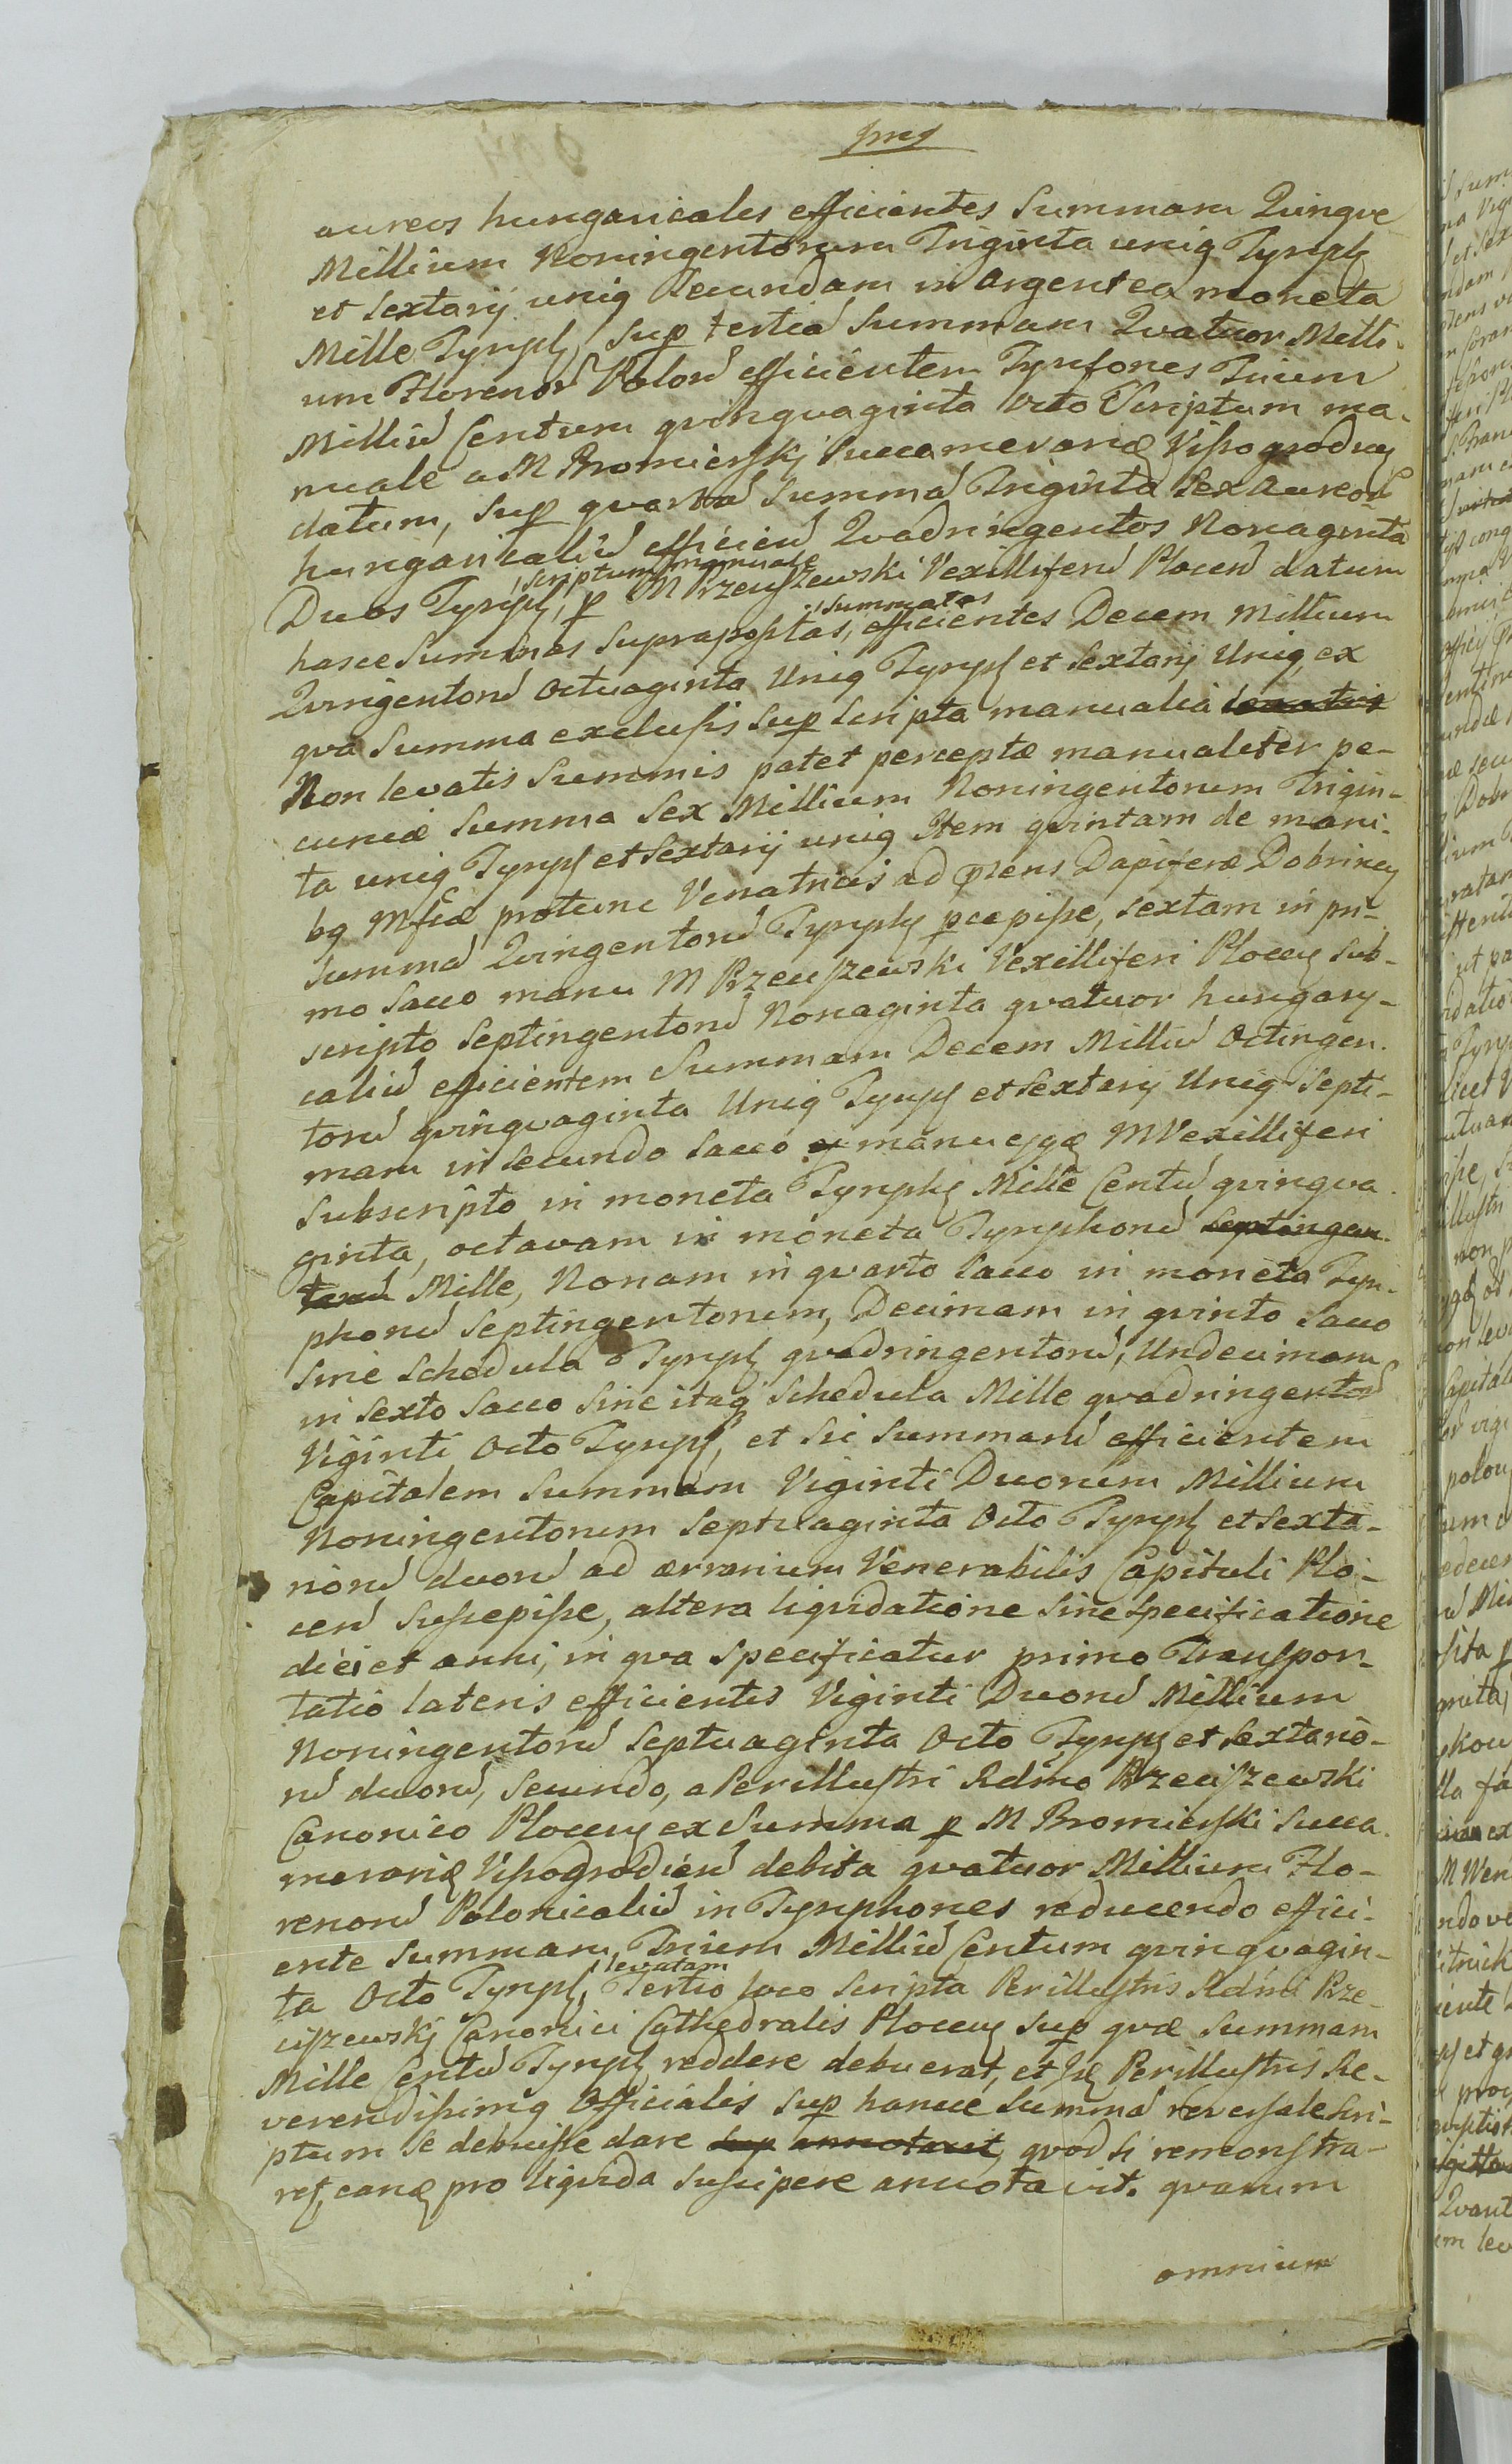 aureos hungaricales efficientes Summam Quinque
Millium Noningentorum Triginta uniq Tymph
et Sextarij uniq Secundam in Argentea moneta
Mille Tymph, Sup tertia Summam Qvatuor Milli-
um Florenor Polon efficientem Tymfones Trium
Milliu Centum qvinqvaginta Octo Scriptum ma-
nuale a M Bromierskj Succamerariæ Vissogrodien
datum, Sup qvarta Summa Triginta Sex Aureor
hungaricaliu efficien Qvadringentos Nonaginta
Duos Tymph, scriptum manuale p M Rzeuszewski Vexilliferu Plocen datum
hasce Summas Supra positas, summatas efficientes Decem Millium
Qvingentoru Octuaginta Uniq Tymph et Sextarij Uniq, ex
qva Summa exclusis Sup Scripta manualia levatis
Non levatis Summis patet perceptæ manualiter pe-
cuniæ Summa Sex Millium Noningentorum Trigin-
ta uniq Tymph et Sextarij uniq Item qvintam de mani-
bq Mficæ protunc Venatricis ad præns Dapiferæ Dobrinen
Summa Qvingentoru Tymph pcepisse, sextam in pri-
mo Sacco manu M Rzeuszewski Vexilliferi Plocen Sub-
scripto Septingentoru Nonaginta qvatuor hungary-
caliu efficientem Summam Decem Milliu Octingen-
toru qvinqvaginta Uniq Tymph et Sextarij Uniq Septi-
mam in Secundo Sacco manu ejqdæ M Vexilliferi
Subscripto in moneta Tymph Mille Centu qvinqva-
ginta, octavam in moneta Tymphoru Septingen-
toru Mille, Nonam in qvarto Sacco in moneta Tym-
phoru Septingentorum, Decimam in qvinto Sacco
Sine Schedula Tymph qvadringentoru, Undecimam
in Sexto Sacco Sine itaq Schedula Mille qvadringentoru
Viginti Octo Tymph, et Sic Summaru efficientem
Capitalem Summam Viginti Duorum Millium
Noningentorum Septuaginta Octo Tymph et Sexta-
rioru duoru ad ærrarium Venerabilis Capituli Plo-
cen Suscepisse, altera liqvidatione Sine Specificatione
diei et anni, in qva Specificatur primo Transpor-
tatio lateris efficientis Viginti Duoru Millium
Noningentoru Septuaginta Octo Tymph et Sextario-
ru duoru, Secundo, a Perillustri Rdmo Rzeciszewski
Canonico Plocen ex Summa p M Bromierski Succa-
merariæ Vissogrodien debita qvatuor Millium Flo-
renoru Polonicaliu in Tymphones reducendo effici-
ente Summam, Trium Milliu Centum qvinqvagin-
ta Octo Tymph, levatam Tertio loco Scripta Perillustris Rdmi Rze-
ciszewskj Canonici Cathedralis Plocen Sup qvæ Summam
Mille Centu Tymph reddere debuerat, et Perillustris Re-
verendissimq Officialis Sup hancce Summa reversale Scri-
ptum Se debuisse dare Sup annotavit, qvod si remonstra-
ret, eanq pro liqvida Suscipere annotavit. qvarum
omnium